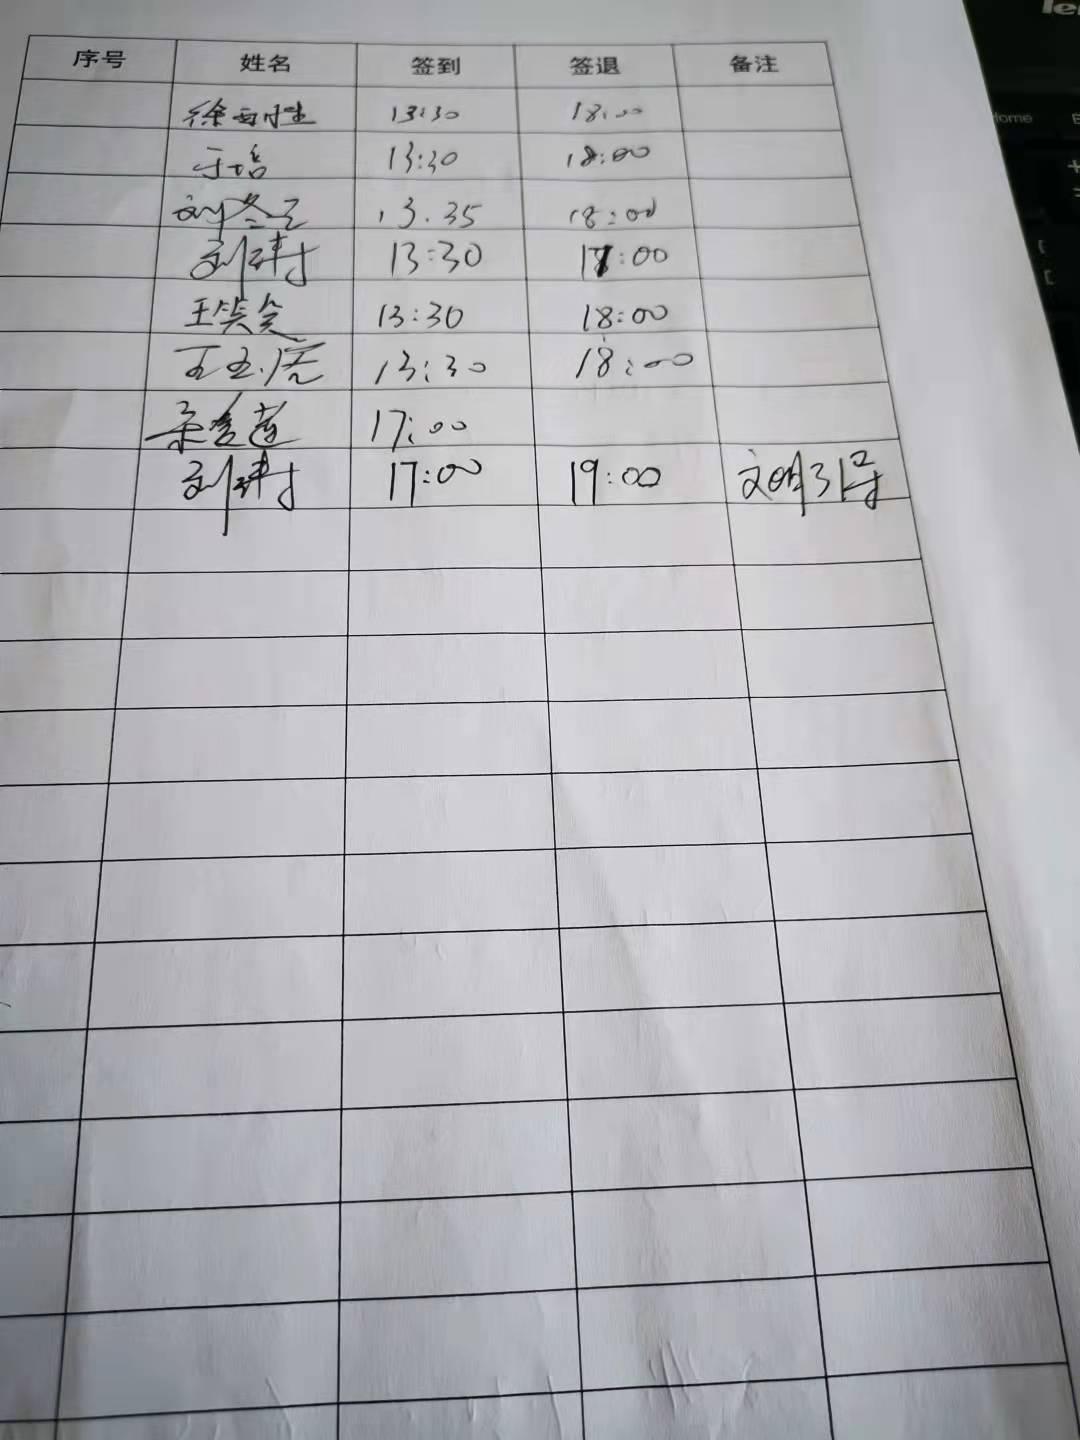 序号 姓名 签到 签退 备注
徐 13:30 18:00
于培 13:30 18:00
刘冬 13.35 18:00
刘 13:30 17:00
王笑 13:30 18:00
王玉 13:30 18:00
17:00
刘 17:00 19:00 文明引导
le
Home